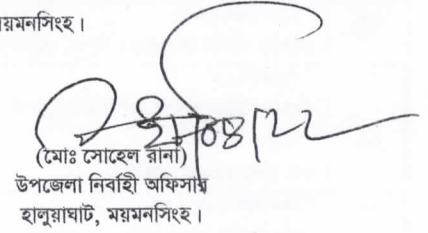 য়মনসিংহ।
(মোঃ সোহেল রানা)
উপজেলা নির্বাহী অফিসার
হালুয়াঘাট, ময়মনসিংহ।